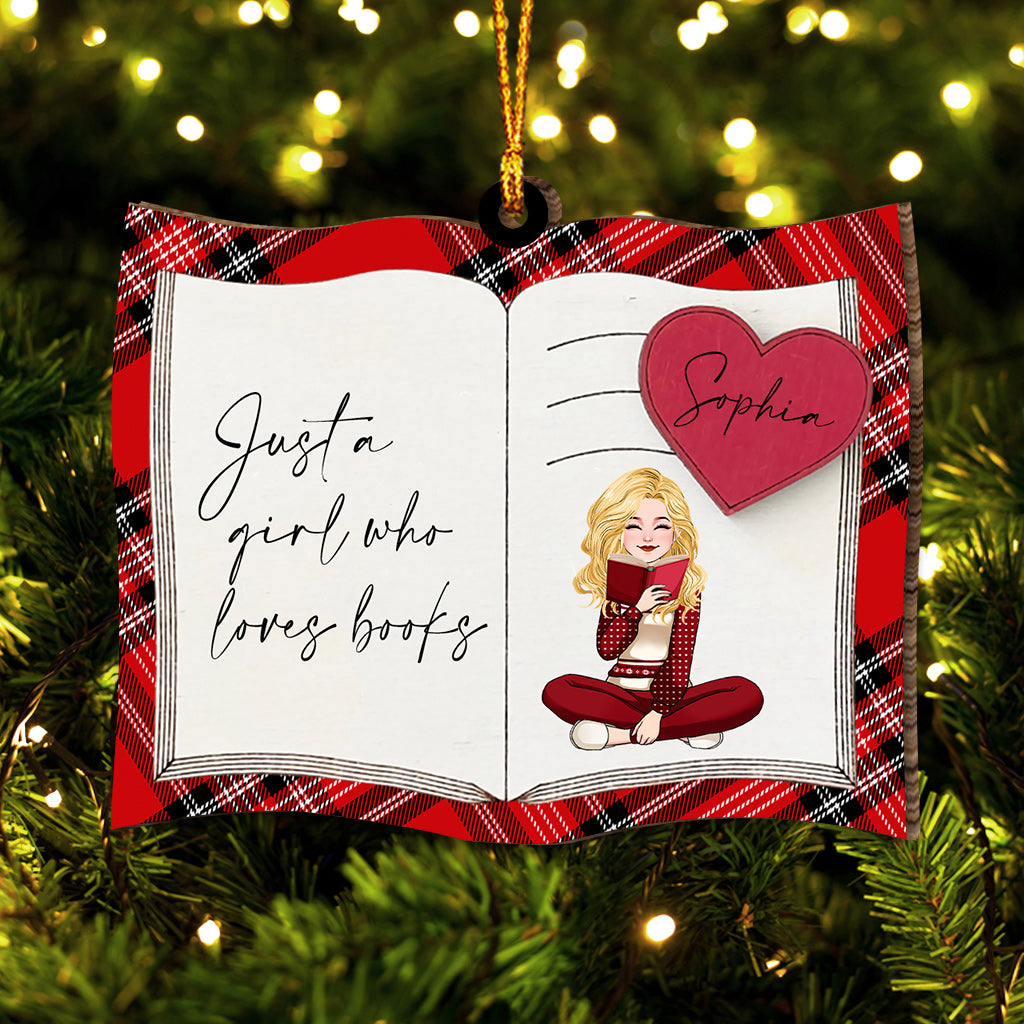 Just a
girl who
loves books
Sophia